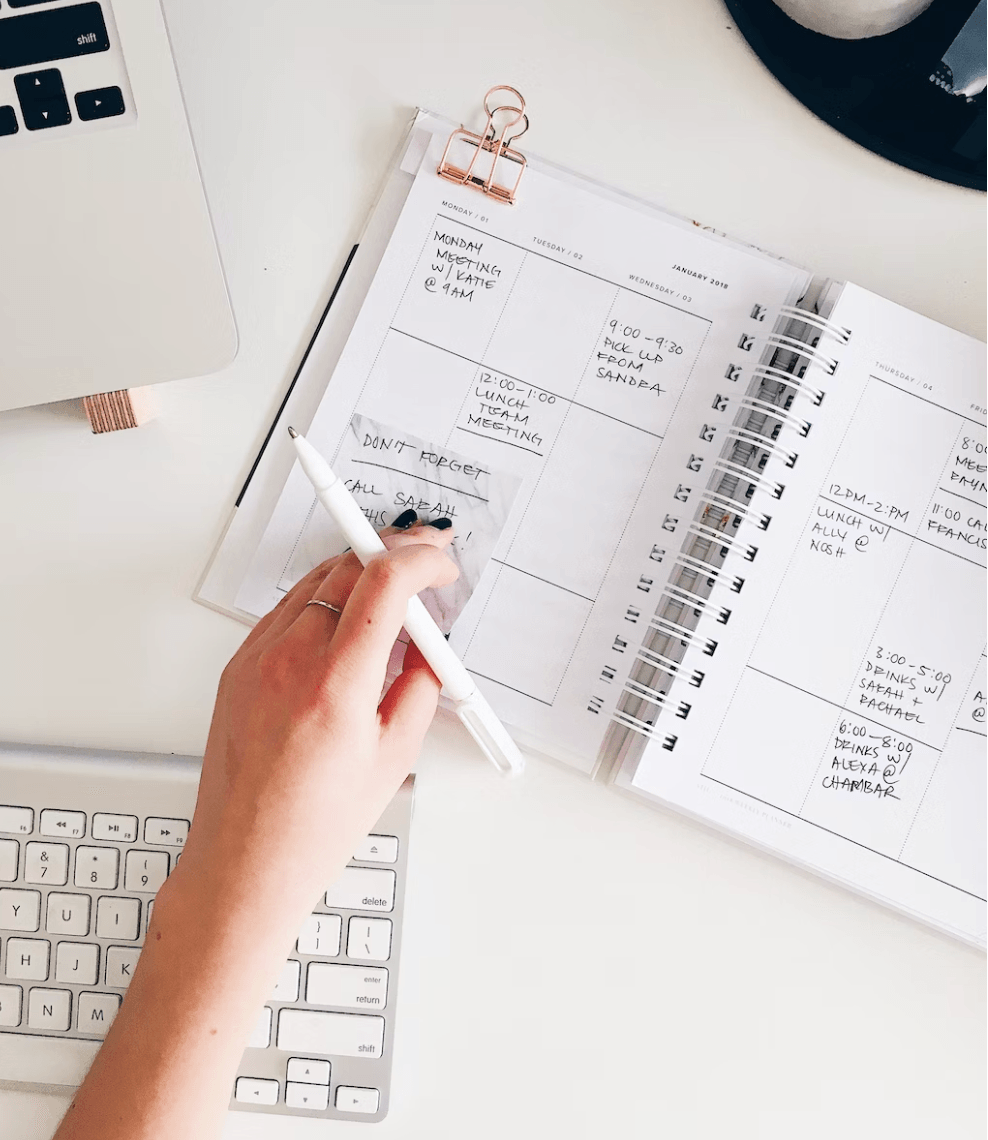 shift
MONDAY / 01
TUESDAY / 02
JANUARY 2018
WEDNESDAY / 03
MONDAY
MEETING
W/ KATIE
@ 9AM
12:00-1:00
LUNCH
TEAM
MEETING
9:00-9:30
PICK UP
FROM
SANDRA
DON'T FORGET
CALL SARAH
THIS
!
THURSDAY / 04
12PM-2PM
LUNCH W/
ALLY @
NOSH
8:00
MEE
11:00 CA
FRANCIS
3:00-5:00
DRINKS W/
SARAH +
RACHAEL
6:00-8:00
DRINKS W/
ALEXA @
CHAMBAR
A
@
F6
F7
F8
F9
& 7
* 8
( 9
Y
U
I
} ]
| \
delete
H
J
K
enter
return
N
M
shift